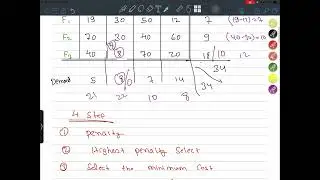 F1 19 30 50 12 7 (19-12)=7
F2 70 30 40 60 9 (40-30)=10
F3 40 8 70 20 18/10 12
34
Demand 5 8/0 7 14
34
21 22 10 8
4 Step
① Penalty
② Highest penalty select
③ Select the minimum cost